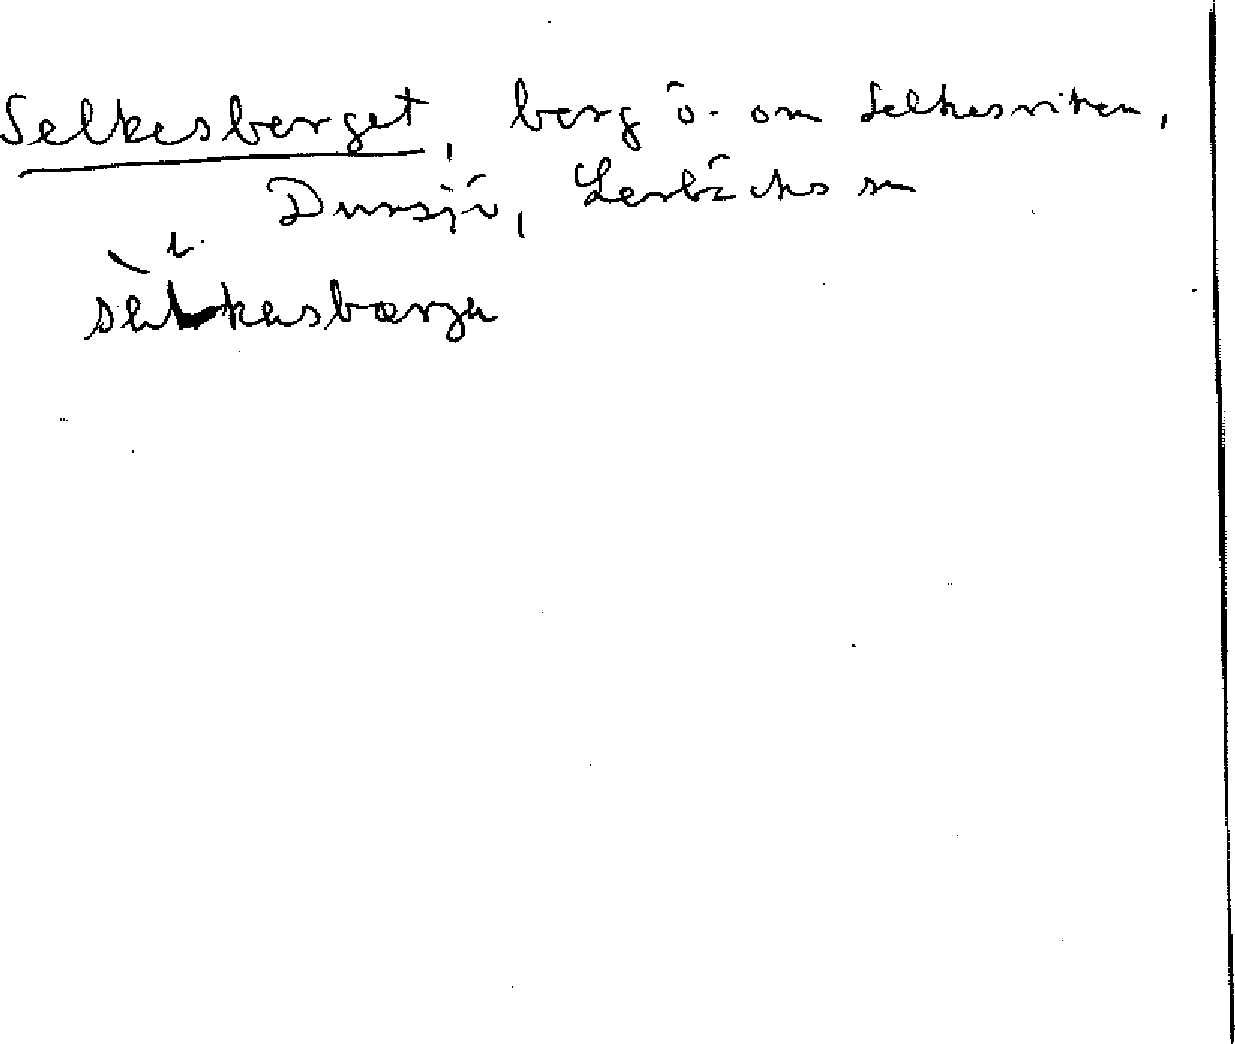 Selkesberget, berg ö. om Selkesviken,
Dunsjö, Lerbäcks sn
sèlkesbærje